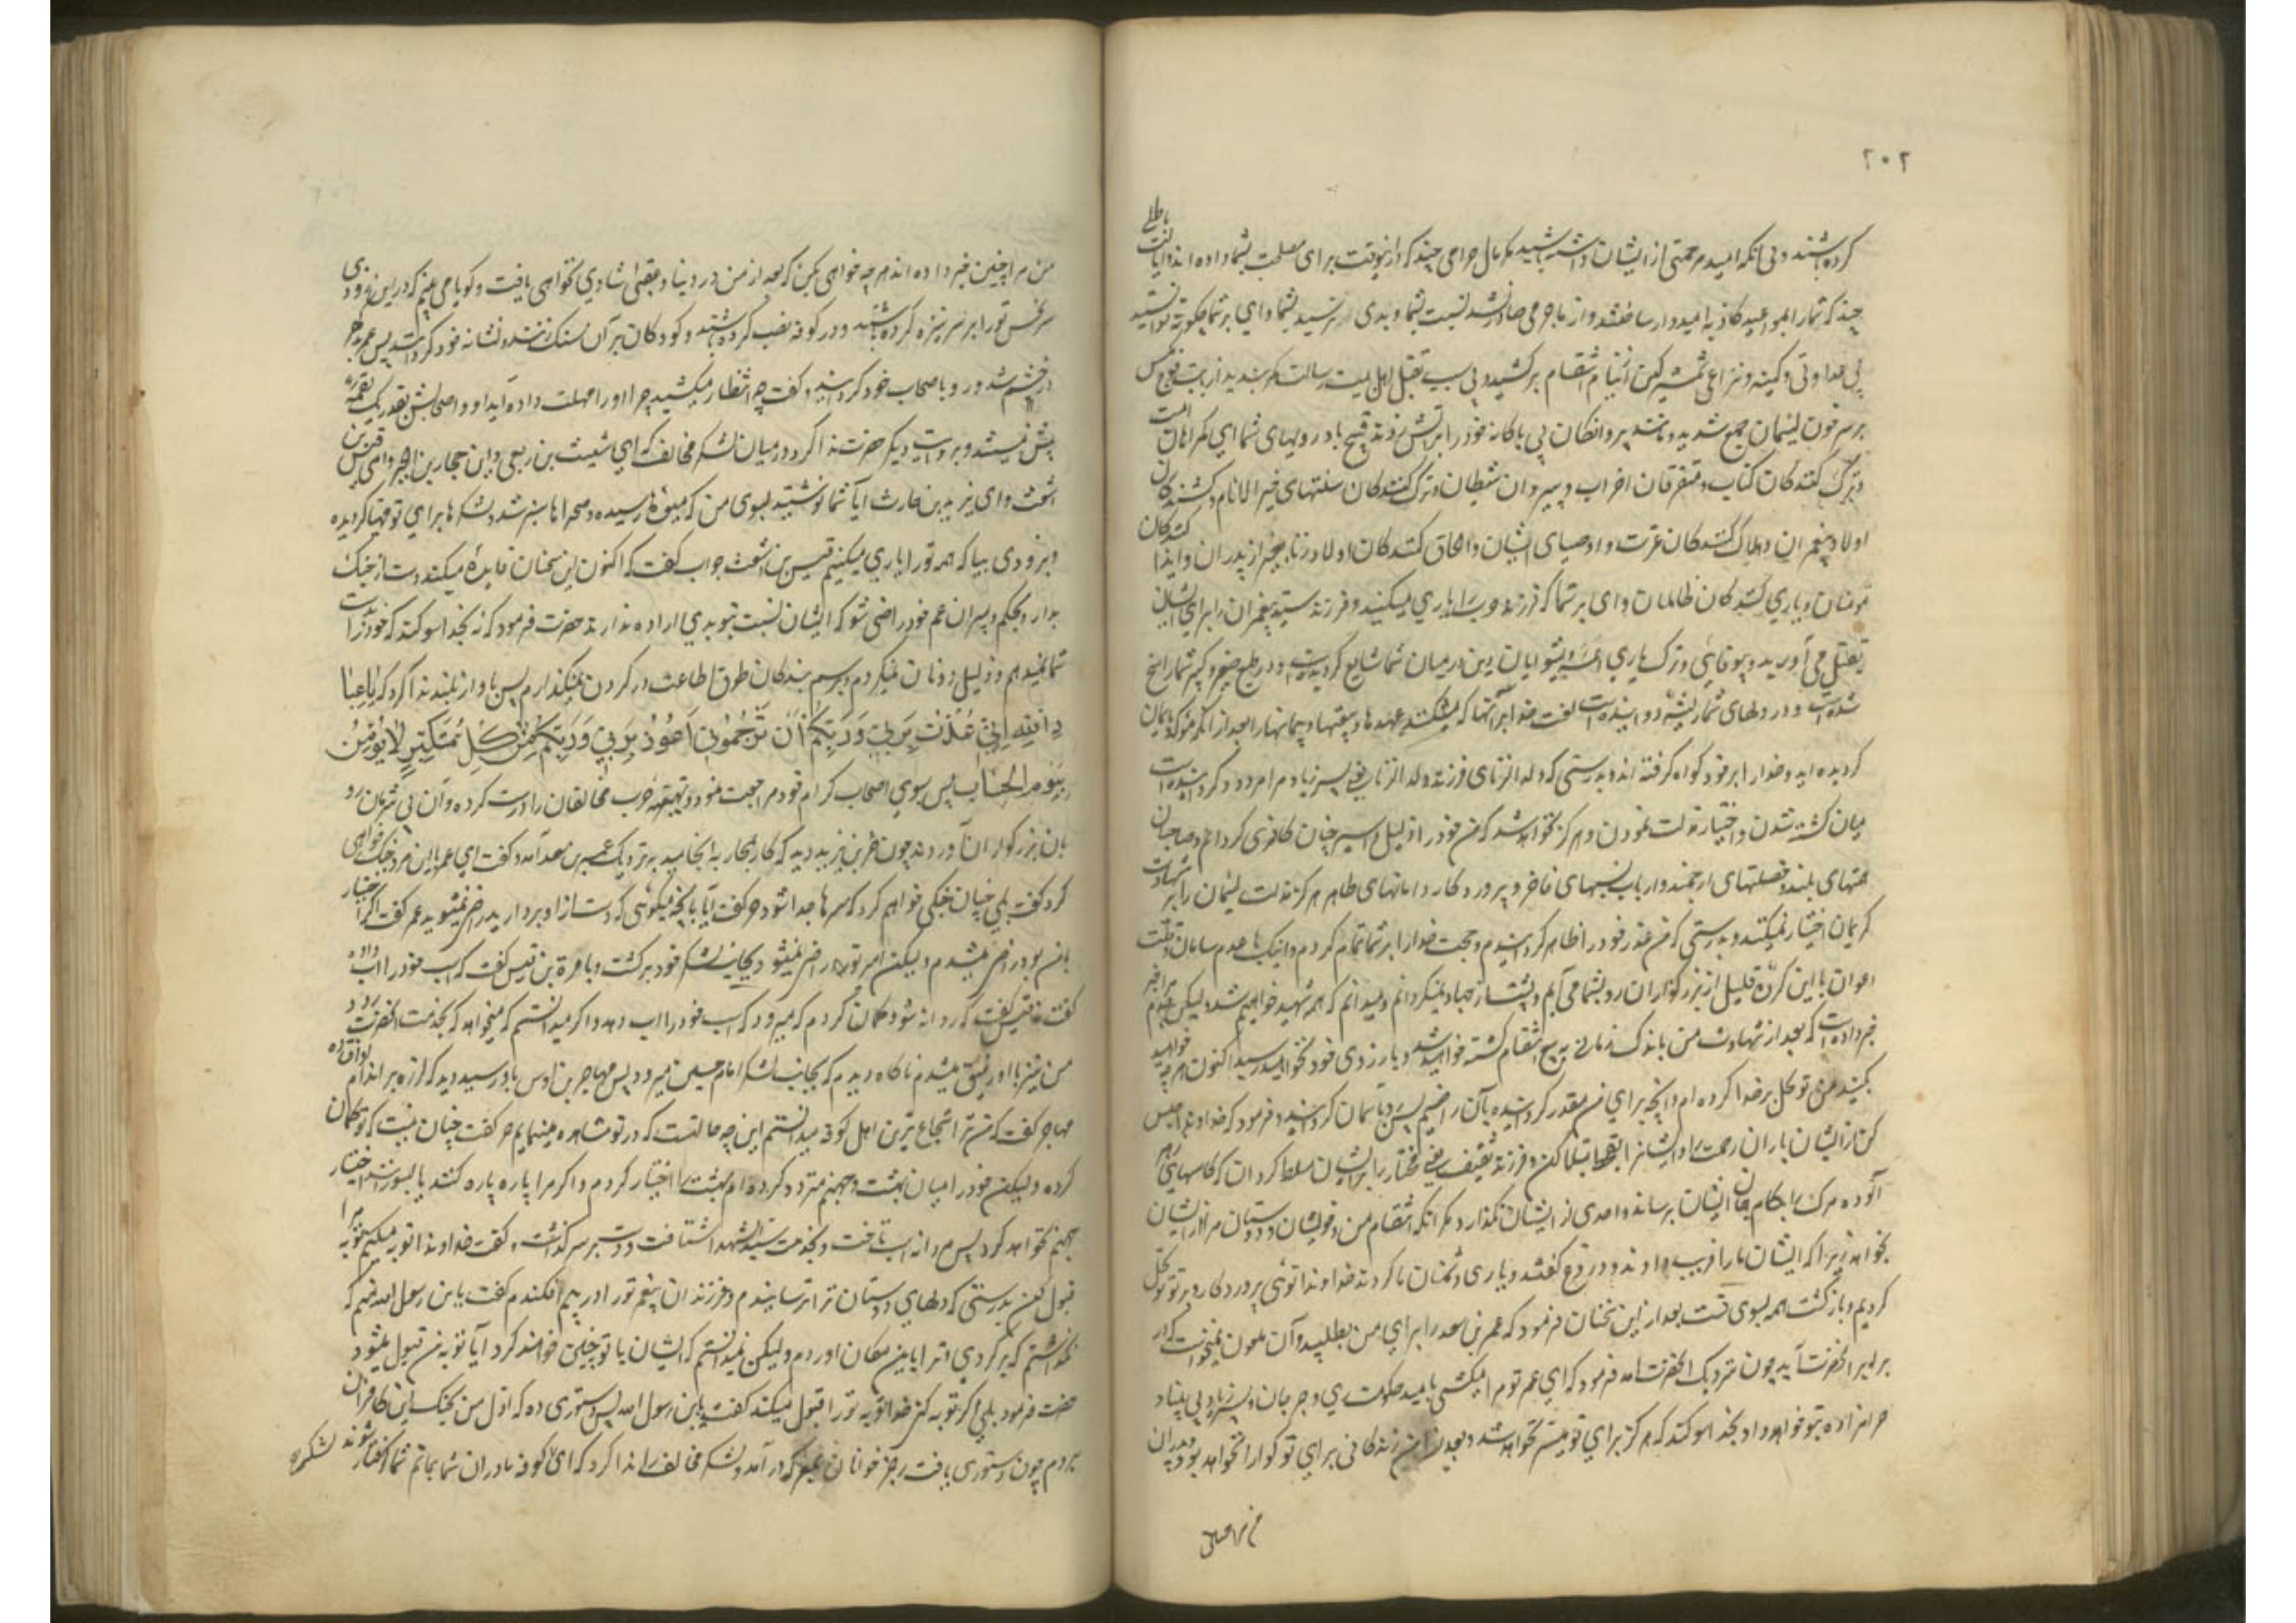 ۲۰۲
کرده باشند و بی آنکه امید مرحمتی از ایشان داشته باشید مکر مال حرامی چند که در اینوقت برای مصلحت بشما داده اند و امانت باطلی
چند که شما را بمواعید کاذبه امیدوار ساخته‌اند و از ما جرمی صادر نشد نسبت بشما و بدی نرسید بشما وای بر شما چکونه توانستید
بی عداوتی و کینه و نزاعی شمشیر کین از نیام انتقام برکشیدید بی سبب بقتل اهل بیت رسالت کمر بستید از بابت فوج مکس
بر سر خون لئیمان جمع شدید و مانند پروانکان بی باکانه خود را بر آتش زدند قبیح باد رویهای شما ای کمراهان امت
و ترک کنندکان کتاب و متفرقان احزاب و پیروان شیطان و ترک کنندکان سنتهای خیر الانام و کشندکان
اولاد پیغمبران و هلاک کنندکان عترت و اوصیای ایشان و الحاق کنندکان اولاد زنا بغیر از پدران و ایذا کنندکان
مؤمنان و یاری کنندکان ظالمان وای بر شما که فرزند حرب را یاری میکنید و فرزند سید پیغمبران را برای ایشان
بقتل می آورید و بیوفائی و ترک یاری ائمه و پیشوایان دین در میان شما شایع کردیده است و در طبع صغیر و کبیر شما راسخ
شده است و در دلهای شما ریشه دوانیده است لعنت خدا بر آنها که میشکنند عهدها و بیعتها و پیمانها را بعد از آنکه مؤکد بایمان
کردیده اید و خدا را بر خود کواه کرفته اند و بدرستی که ولد الزنای فرزند ولد الزنا یعنی پسر زیاد مرا مردد کردانیده است
میان کشته شدن و اختیار مذلت نمودن و هرکز نخواهد شد که من خود را ذلیل و اسیر چنان کافری کردانم و صاحبان
همتهای بلند و خصلتهای ارجمند و ارباب نسبهای فاخر و پرورد کار دامانهای طاهر هرکز مذلت لئیمان را بر شهادت
کریمان اختیار نمیکنند و بدرستی که من عذر خود را ظاهر کردانیدم و حجت خدا را بر شما تمام کردم و اینک با عدم سامان و قلت
اعوان با این کروه قلیل از بزرکواران رو بشما می آیم و پشت از جهاد نمیکردانم و میدانم که همه شهید خواهیم شد ولیکن جدم مرا خبر
خبر داده است که بعد از شهادت من باندک زمانی به تیغ انتقام کشته خواهید شد و بآرزوی خود نخواهید رسید اکنون هر چه خواهید
بکنید من توکل بر خدا کرده ام و آنچه برای من مقدر کردانیده بآن راضیم پس رو بآسمان کردانید و فرمود که خداوندا حبس
کن از ایشان باران رحمت را و ایشانرا بقحط مبتلا کن و فرزند ثقیف یعنی مختار را بر ایشان مسلط کردان که کاسهای زهر
آلوده مرک را بکام جان ایشان برساند و احدی از ایشان نکذارد مکر آنکه انتقام من و خویشان و دوستان مرا از ایشان
بخواهد زیرا که ایشان ما را فریب دادند و دروغ کفتند و یاری دشمنان ما کردند خداوندا توئی پروردکار ما و بر تو توکل
کردیم و بازکشت همه بسوی تست بعد از این سخنان فرمود که عمر بن سعد را برای من بطلبید و آن ملعون نمیخواست که در
برابر آنحضرت آید چون نزدیک آنحضرت آمد فرمود که ای عمر تو مرا میکشی بامید حکومت ری و جرجان و پسر زیاد بی بنیاد
حرامزاده بتو خواهد داد بخدا سوکند که هرکز برای تو میسر نخواهد شد و بعد از من زندکانی برای تو کوارا نخواهد بود و پدران
من مرا چنین خبر داده اند هر چه خواهی بکن که بعد از من در دنیا و عقبی شادی نخواهی یافت و کویا می بینم که در این زودی
سر نحس تو را بر سر نیزه کرده باشند و در کوفه نصب کرده باشند و کودکان بر آن سنک زنند و نشانه خود کردانند پس عمر
در خشم شد و رو باصحاب خود کردانید و کفت چه انتظار میکشید چرا او را مهلت داده اید او و اصحابش بقدر یک لقمه
بیش نیستند و بروایت دیکر حضرت ندا کرد در میان لشکر مخالف که ای شیث بن ربعی و ای حجار بن ابجر و ای قیس بن
اشعث و ای یزید بن حارث آیا شما نوشتید بسوی من که میوها رسیده و صحراها سبز شده و لشکرها برای تو مهیا کردیده
و بزودی بیا که همه تو را یاری میکنیم قیس بن اشعث جواب کفت که اکنون این سخنان فایده نمیکند دست از جنک
بدار و بحکم پسران عم خود راضی شو که ایشان نسبت بتو بدی اراده ندارند حضرت فرمود که نه بخدا سوکند که خود را بدست
شما نمیدهم و ذلیل دونان نمیکردم و برسم بندکان طوق اطاعت در کردن نمیکذارم پس بآواز بلند ندا کرد که یا عباد
الله اِنّی عُذْتُ بِرَبّی وَرَبِّکُمْ اَنْ تَرْجُمُونِ اَعُوذُ بِرَبّی وَرَبِّکُمْ مِنْ کُلِّ مُتَکَبِّرٍ لا یُؤْمِنُ
بِیَوْمِ الْحِسابِ پس بسوی اصحاب کرام خود مراجعت نمود و تهیه حرب مخالفان را درست کرده و آن بی شرمان رو
بآن بزرکواران آوردند چون حر بن یزید دید که کار بمحاربه انجامید به نزدیک عمر بن سعد آمد و کفت ای عمر با این مرد جنک خواهی
کرد کفت بلی چنان جنکی خواهم کرد که سرها جدا شود حر کفت آیا بآنچه میکوئی که دست از او بردارید راضی نمیشوید عمر کفت اکر اختیار
با من بود راضی میشدم ولیکن امیر تو راضی نمیشود حر بجانب لشکر خود برکشت و با قرة بن قیس کفت که اسب خود را آب داده
کفت نه قیس کفت که روانه شد و کمان کردم که میرود که اسب خود را آب دهد و اکر میدانستم که میخواهد که بخدمت آنحضرت رود
من نیز با او رفیق میشدم ناکاه دیدم که بجانب لشکر امام حسین میرود پس مهاجر بن اوس باو رسید دید که لرزه بر اندام او افتاده
مهاجر کفت که من ترا شجاع ترین اهل کوفه میدانستم این چه حالتست که در تو مشاهده مینمایم حر کفت چنان نیست که تو کمان
کرده ولیکن خود را میان بهشت و جهنم متردد کرده ام بهشت را اختیار کردم و اکر مرا پاره پاره کنند یا بسوزانند اختیار
جهنم نخواهم کرد پس مردانه اسب تاخت و بخدمت سید الشهدا شتافت و دست بر سر کذاشت و کفت خداوندا توبه میکنم توبه مرا
قبول کن بدرستی که دلهای دوستان ترا ترسانیدم و فرزندان پیغمبر تو را در بیم افکندم کفت یابن رسول الله منم که
نکذاشتم که برکردی و ترا باین مکان آوردم ولیکن نمیدانستم که ایشان با تو چنین خواهند کرد آیا توبه من قبول میشود
حضرت فرمود بلی اکر توبه کنی خدا توبه تو را قبول میکند کفت یابن رسول الله پس دستوری ده که اول من بجنک این کافران
بروم چون دستوری یافت رجز خوانان بمعرکه در آمد و لشکر مخالف را ندا کرد که ای اهل کوفه مادران شما بماتم شما کرفتار شوند لشکر